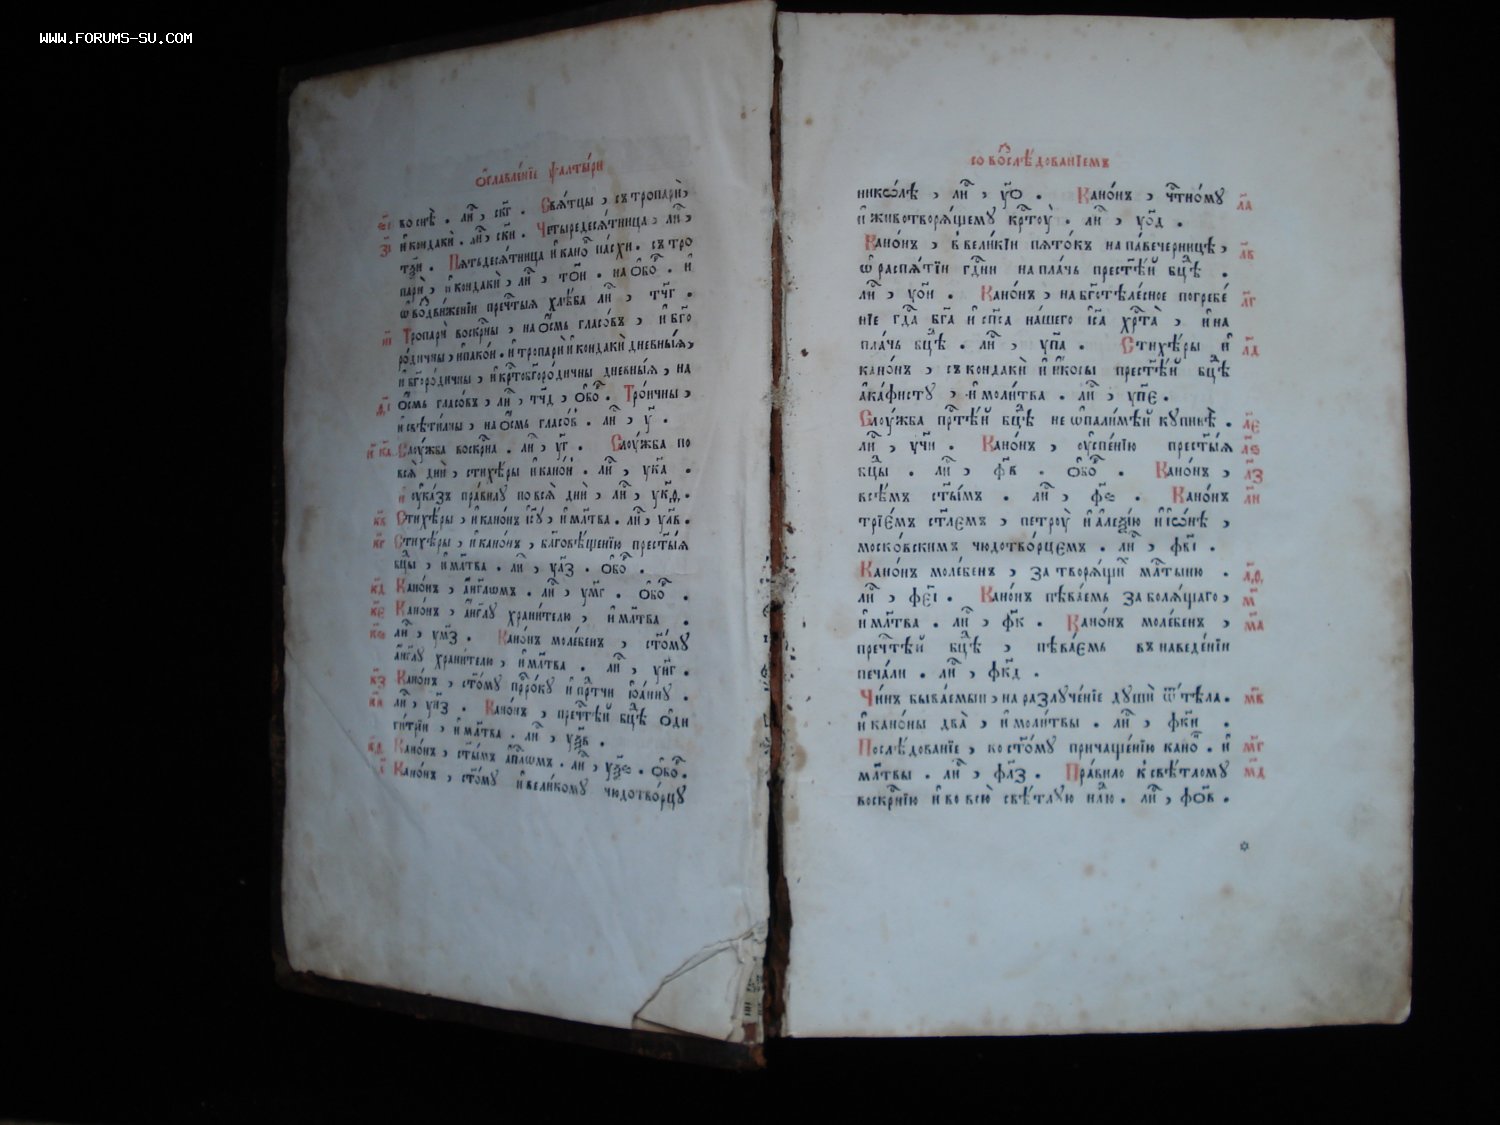 WWW.FORUMS-SU.COM
ѡ҆главле́нїе ѱалты́ри
во снѣ̀ . ли́ , ски҃ . Свѧ́тцы , съ тропарѝ ,
и҆ кондакѝ . ли́ , ски҃ . Четыредесѧ́тница , ли́ ,
Пѧтьдесѧ́тница и҆ кано́ пасхи . съ тро
парѝ , и҆ кондакѝ , ли́ , то҃и . на ѻ҆бо́ . и҆
пречⷭ҇тыѧ хлѣ́ба ли́ , тч҃г .
Тропарѝ воскрⷭ҇ны , на ѻ҆́смь гласо́въ , и҆ бг҃о
ро́дичны , и҆пакоѝ . и҆ тропарѝ и҆ кондакѝ дневны́ѧ ,
и҆ бг҃оро́дичны , и҆ крⷭ҇тобг҃оро́дичны дневны́ѧ , на
ѻ҆́смь гласо́въ , ли́ , тч҃д , ѻ҆бо́ . Трои́чны ,
и҆ свѣти́лны , на ѻ҆́смь гласо́ . ли́ , у҃ .
к҃а Слꙋ́жба воскрⷭ҇на . ли́ , у҃г . Слꙋ́жба по
всѧ̀ днѝ , стихѣ́ры и҆ кано́н . ли́ , ук҃а .
и҆ ꙋ҆ка́зъ пра́вилꙋ по всѧ̀ днѝ , ли́ , ук҃ѳ .
к҃в Стихѣ́ры , и҆ кано́нъ і҆с꙽ꙋ , и҆ мл҃тва . ли́ , ул҃в .
к҃г Стихѣ́ры , и҆ кано́нъ , благовѣ́щенїю прест҃ы́ѧ
бц҃ы , и҆ мл҃тва . ли́ , ул҃з . ѻ҆бо́ .
к҃д Кано́нъ , а҆́нг҃лѡмъ . ли́ , ум҃г . ѻ҆бо́ .
к҃є Кано́нъ , а҆́нг҃лꙋ храни́телю , и҆ мл҃тва .
ли́ , ум҃з . Кано́нъ моле́бенъ , ст҃о́мꙋ
а҆́нг҃лꙋ храни́телю , и҆ мл҃тва . ли́ , ун҃г .
к҃з Кано́нъ , ст҃о́мꙋ прⷪ҇ро́кꙋ и҆ прⷣтчи і҆ѡа́ннꙋ .
к҃и ли́ , ун҃з . Кано́нъ , пречⷭ҇тѣй бц҃ѣ ѻ҆ди
ги́трїи , и҆ мл҃тва . ли́ , уѯ҃в .
Кано́нъ , ст҃ы́мъ а҆пⷭ҇лѡмъ . ли́ , уѯ҃ѕ . ѻ҆бо́ .
Кано́нъ , ст҃о́мꙋ и҆ вели́комꙋ чюдотво́рцꙋ
со воⷭ҇слѣ́дованїемъ
нико́лѣ , ли́ , уо҃ . Кано́нъ , чⷭ҇тно́мꙋ л҃а
и҆ животворѧ́щемꙋ крⷭ҇тꙋ̀ . ли́ , уо҃д .
Кано́нъ , в вели́кїи пѧто́къ на па́вечерницѣ , л҃в
ѡ҆ распѧ́тїи гдⷭ҇ни на пла́чь прест҃ѣ́й бц҃ѣ .
ли́ , уо҃и . Кано́нъ , на бг҃отѣле́сное погребе́ л҃г
нїе гдⷭ҇а бг҃а и҆ сп҃са на́шего і҆с҃а хрⷭ҇та̀ , и҆ на
пла́чь бц҃ѣ . ли́ , уп҃а . Стихѣ́ры и҆ л҃д
кано́нъ , съ кондакѝ и҆ и҆́косы прест҃ѣ́й бц҃ѣ
а҆ка́фистꙋ , и҆ моли́тва . ли́ , уп҃є .
Слꙋ́жба прⷭ҇тѣ́й бц҃ѣ не ѡ҆пали́мѣй кꙋпинѣ̀ . л҃є
ли́ , уч҃и . Кано́нъ , ᲂу҆спе́нїю прест҃ы́ѧ л҃ѕ
бц҃ы . ли́ , ф҃в . ѻ҆бо́ . Кано́нъ , л҃з
всѣ́мъ ст҃ы́мъ . ли́ , ф҃ѕ . Кано́нъ л҃и
трїе́мъ ст҃лемъ , петрꙋ̀ и҆ а҆леѯі́ю и҆ і҆ѡ́нѣ ,
моско́вскимъ чюдотво́рцемъ . ли́ , фв҃і .
Кано́нъ моле́бенъ , за творѧ́щиⷯ ми́лⷭ҇тыню . л҃ѳ
ли́ , фє҃і . Кано́нъ пѣва́емь за болѧ́щаго , м҃
и҆ мл҃тва . ли́ , фк҃ . Кано́нъ моле́бенъ , м҃а
пречⷭ҇тѣ́й бц҃ѣ , пѣва́емь въ наведе́нїи
печа́ли . ли́ , фк҃д .
Чи́нъ быва́емыи , на разлꙋче́нїе дꙋшѝ ѿ тѣ́ла . м҃в
и҆ кано́ны два̀ , и҆ моли́твы . ли́ , фк҃и .
Послѣ́дованїе , ко ст҃о́мꙋ причаще́нїю кано́ . и҆ м҃г
мл҃твы . ли́ , фл҃з . Пра́вило к свѣ́тломꙋ м҃д
воскрⷭ҇нїю и҆ во всю̀ свѣ́тлꙋю нд҃лю . ли́ , фо҃в .